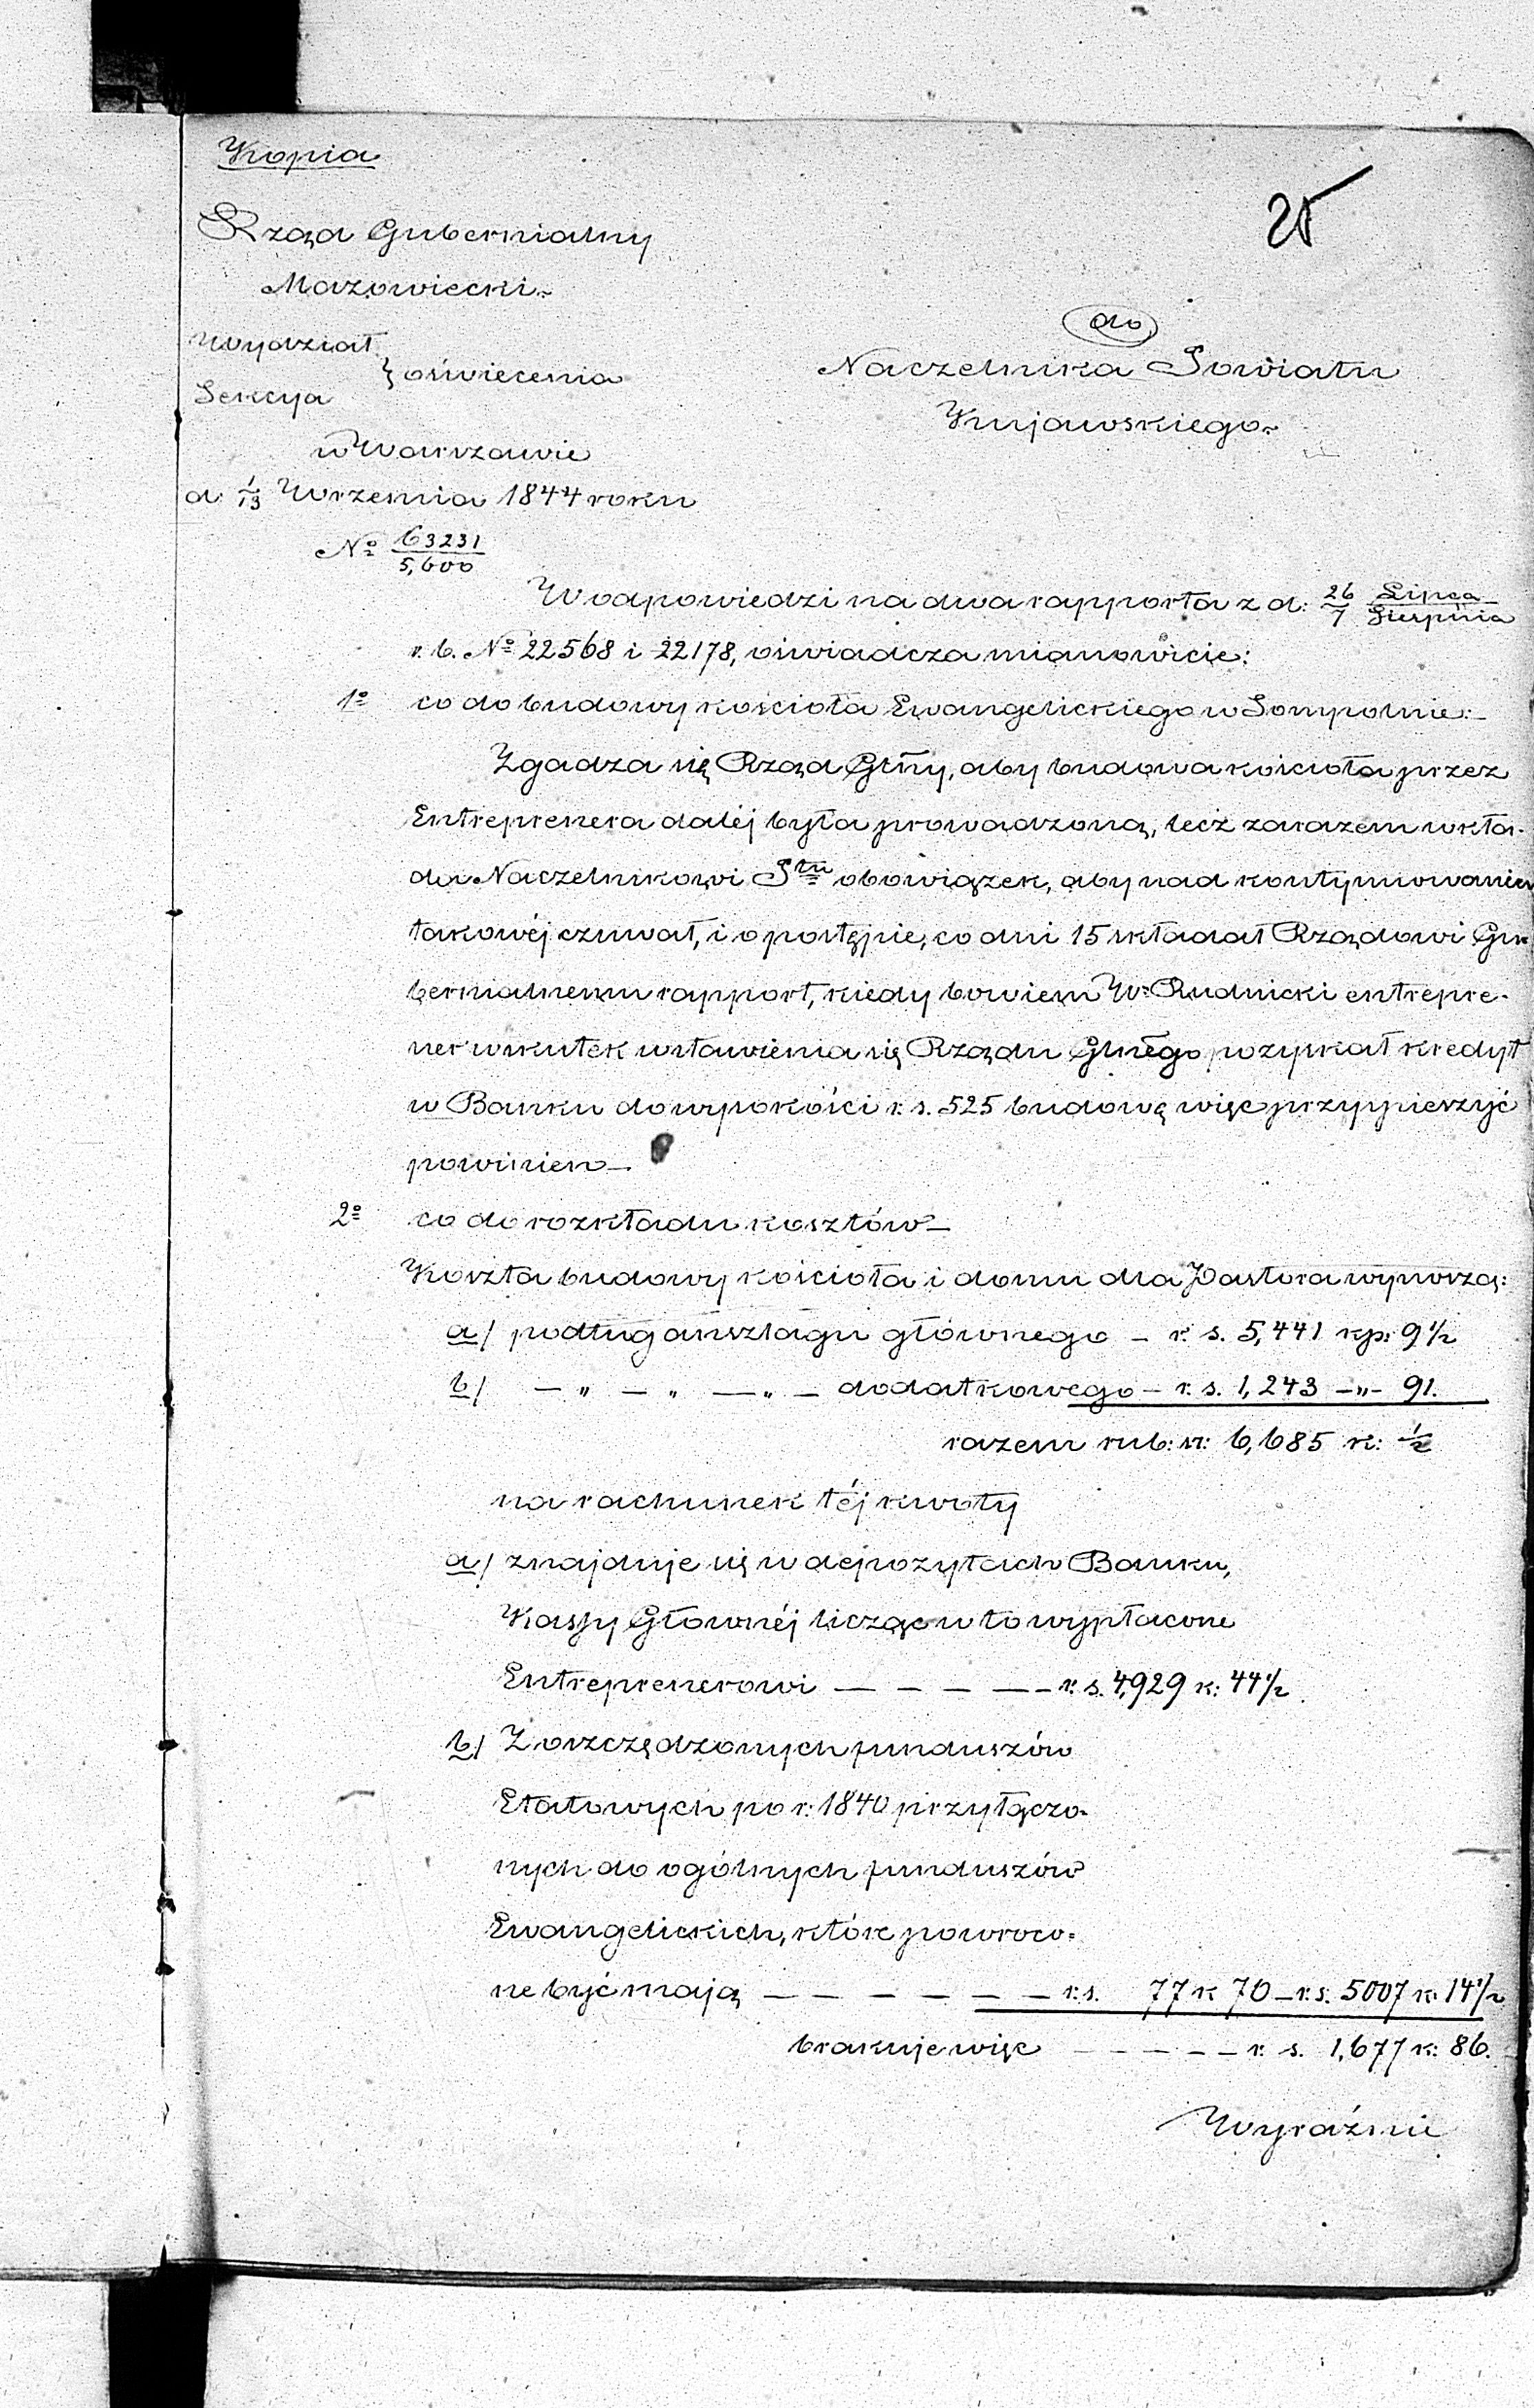 Kopia
25
Rząd Gubernialny
Mazowiecki.
Wydział
Sekcya } oświecenia
w Warszawie
d: 1/13 Września 1844 roku
№ 63231/5,600
do
Naczelnika Powiatu
Kujawskiego.
W odpowiedzi na dwa rapporta z d: 26/7 Lipca/Sierpnia
r. b. № 22568 i 22178, oświadcza mianowicie:
1o co do budowy kościoła Ewangelickiego w Sompolnie:
Zgadza się Rząd Glny, aby budowa kościoła przez
Entreprenera daléj była prowadzoną, lecz zarazem wkła-
da Naczelnikowi Ptu obowiązek, aby nad kontynuowaniem
takowéj czuwał, i o postępie, co dni 15 składał Rządowi Gu-
bernialnemu rapport, kiedy bowiem W. Rudnicki entrepre-
ner wskutek wstawienia się Rządu Glnego pozyskał kredyt
w Banku do wysokości r. s. 525 budowę więc przyspieszyć
powinien –
2o co do rozkładu kosztów –
Koszta budowy kościoła i domu dla Pastora wynoszą:
a/ podług anszlagu głównego – r. s. 5,441 kp: 9 1/2
b/ – " – " – " – dodatkowego – r. s. 1,243 –"– 91.
razem rub: sr: 6,685 k: 1/2
na rachunek téj kwoty
a/ znajduje się w depozytach Banku,
Kassy Głównéj licząc w to wypłacone
Entreprenerowi – – – – – r. s. 4,929 k: 44 1/2
b/ Z oszczędzonych funduszów
Etatowych po r: 1840 przyłączo-
nych do ogólnych funduszów
Ewangelickich, które powroco-
ne być mają – – – – – – r. s. 77 k 70 – r. s. 5007 k: 14 1/2
brakuje więc – – – – – r. s. 1,677 k: 86.
Wyraźnie